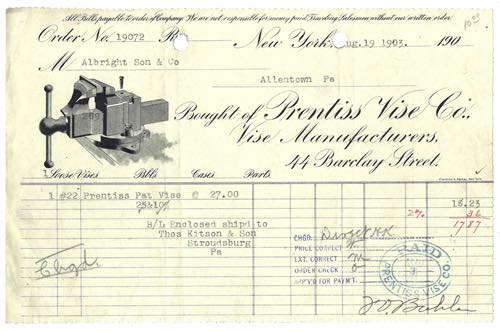 All Bills payable to order of Company. We are not responsible for money paid Traveling Salesmen without our written order
10.00
Order No. 19072 R
New York, Aug. 19 1903. 190
M Albright Son & Co
Allentown Pa
Bought of Prentiss Vise Co.,
Vise Manufacturers,
44 Barclay Street.
1 Loose Vises Bbls Cases Parts
1 #22 Prentiss Pat Vise @ 27.00 18.23
25&10% 2%. 36
17.87
B/L Enclosed shipd to
Thos Kitson & Son
Stroudsburg
Pa
Chgd.
CHGD.
PRICE CORRECT
EXT. CORRECT
ORDER CHECK
APPV'D FOR PAYM'T.
PAID
PRENTISS VISE CO.